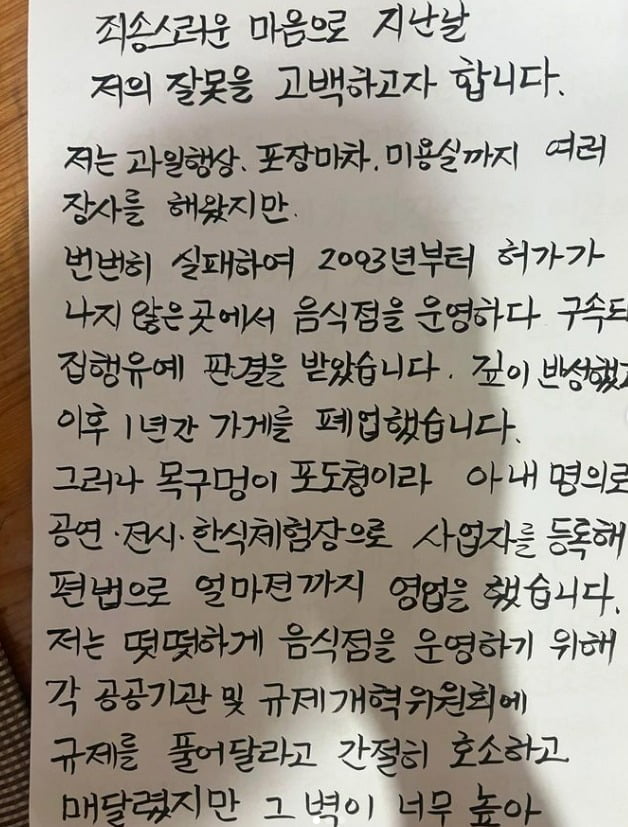 죄송스러운 마음으로 지난날
저의 잘못을 고백하고자 합니다.
저는 과일행상. 포장마차. 미용실까지 여러
장사를 해왔지만.
번번히 실패하여 2003년부터 허가가
나지 않은 곳에서 음식점을 운영하다 구속되
집행유예 판결을 받았습니다. 깊이 반성했고
이후 1년간 가게를 폐업했습니다.
그러나 목구멍이 포도청이라 아내 명의로
공연·전시·한식체험장으로 사업자를 등록해
편법으로 얼마전까지 영업을 했습니다.
저는 떳떳하게 음식점을 운영하기 위해
각 공공기관 및 규제개혁위원회에
규제를 풀어달라고 간절히 호소하고
매달렸지만 그 벽이 너무 높아